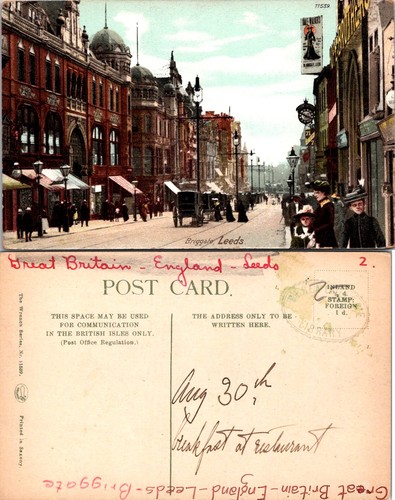 11539
Briggate, Leeds
Great Britain - England - Leeds 2.
POST CARD.
THIS SPACE MAY BE USED
FOR COMMUNICATION
IN THE BRITISH ISLES ONLY.
(Post Office Regulation.)
THE ADDRESS ONLY TO BE
WRITTEN HERE.
INLAND
½ d.
STAMP:
FOREIGN
1 d.
2
LIBRARY
The Wrench Series, No. 11539
Printed in Saxony.
Aug 30th
breakfast at restaurant
Great Britain-England-Leeds-Briggate